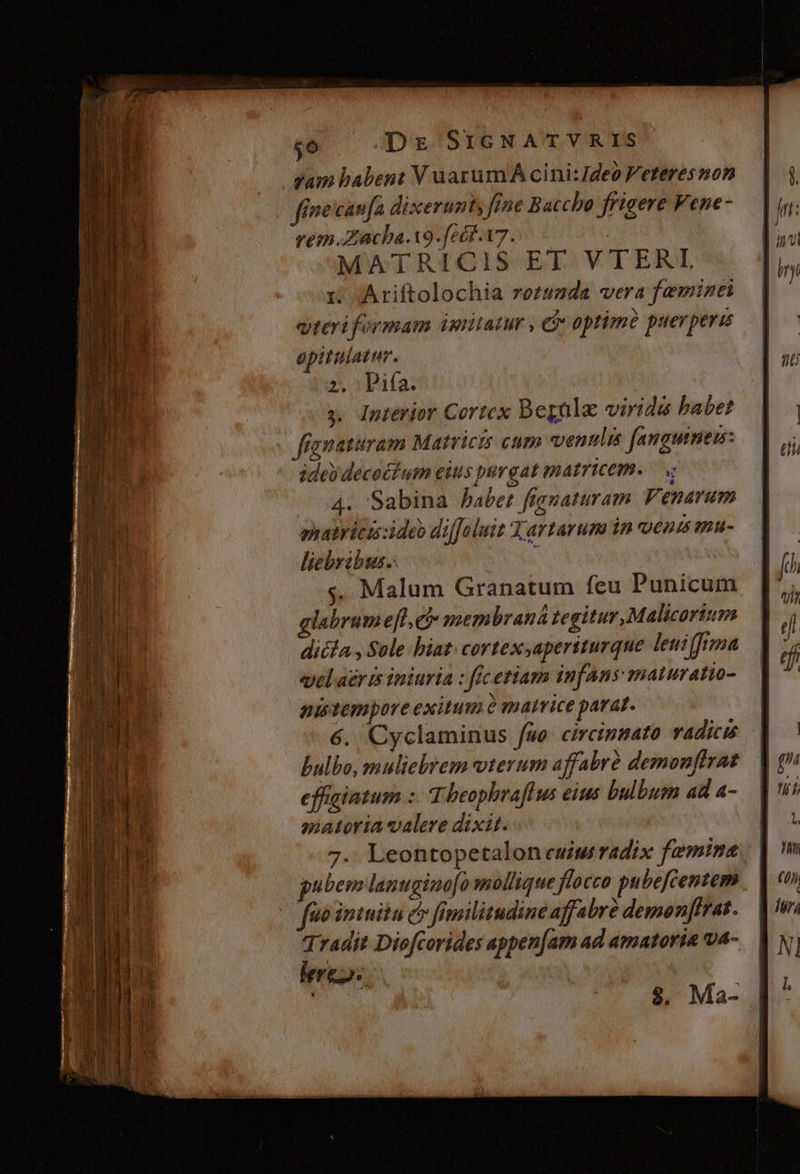 50 DE SIGNATVRIS
gam habent Vuarum Acini: Ideò Veteres non
ſine cauſa dixerunt, ſine Baccho frigere Vene-
rem. Zacha. 19. ſect. 17.
MATRICIS ET VTERI.
1. Ariſtolochia rotunda vera fœminei
vteri formam imitatur, & optimè puerperis
opitulatur.
2. Piſa.
3. Interior Cortex Betulæ viridis habet
ſignaturam Matricis cum venulis ſanguineis:
ideò decoctum eius purgat matricem.
4. Sabina habet ſignaturam Venarum
matricis: ideò diſſoluit Tartarum in venis mu-
liebribus.
5. Malum Granatum ſeu Punicum
glabrum eſt, & membranâ tegitur, Malicorium
dicta, Sole hiat cortex, aperiturque leuiſſima
vel aëris iniuria: ſic etiam infans maturatio-
nis tempore exitum è matrice parat.
6. Cyclaminus ſuo circinnato radicis
bulbo, muliebrem vterum affabrè demonſtrat
effigiatum: Theophraſtus eius bulbum ad a-
matoria valere dixit.
7. Leontopetalon cuius radix fœminæ
pubem lanuginoſo mollique flocco pubeſcentem
ſuo intuitu & ſimilitudine affabrè demonſtrat.
Tradit Dioſcorides appenſam ad amatoria va-
lere.
8. Ma-